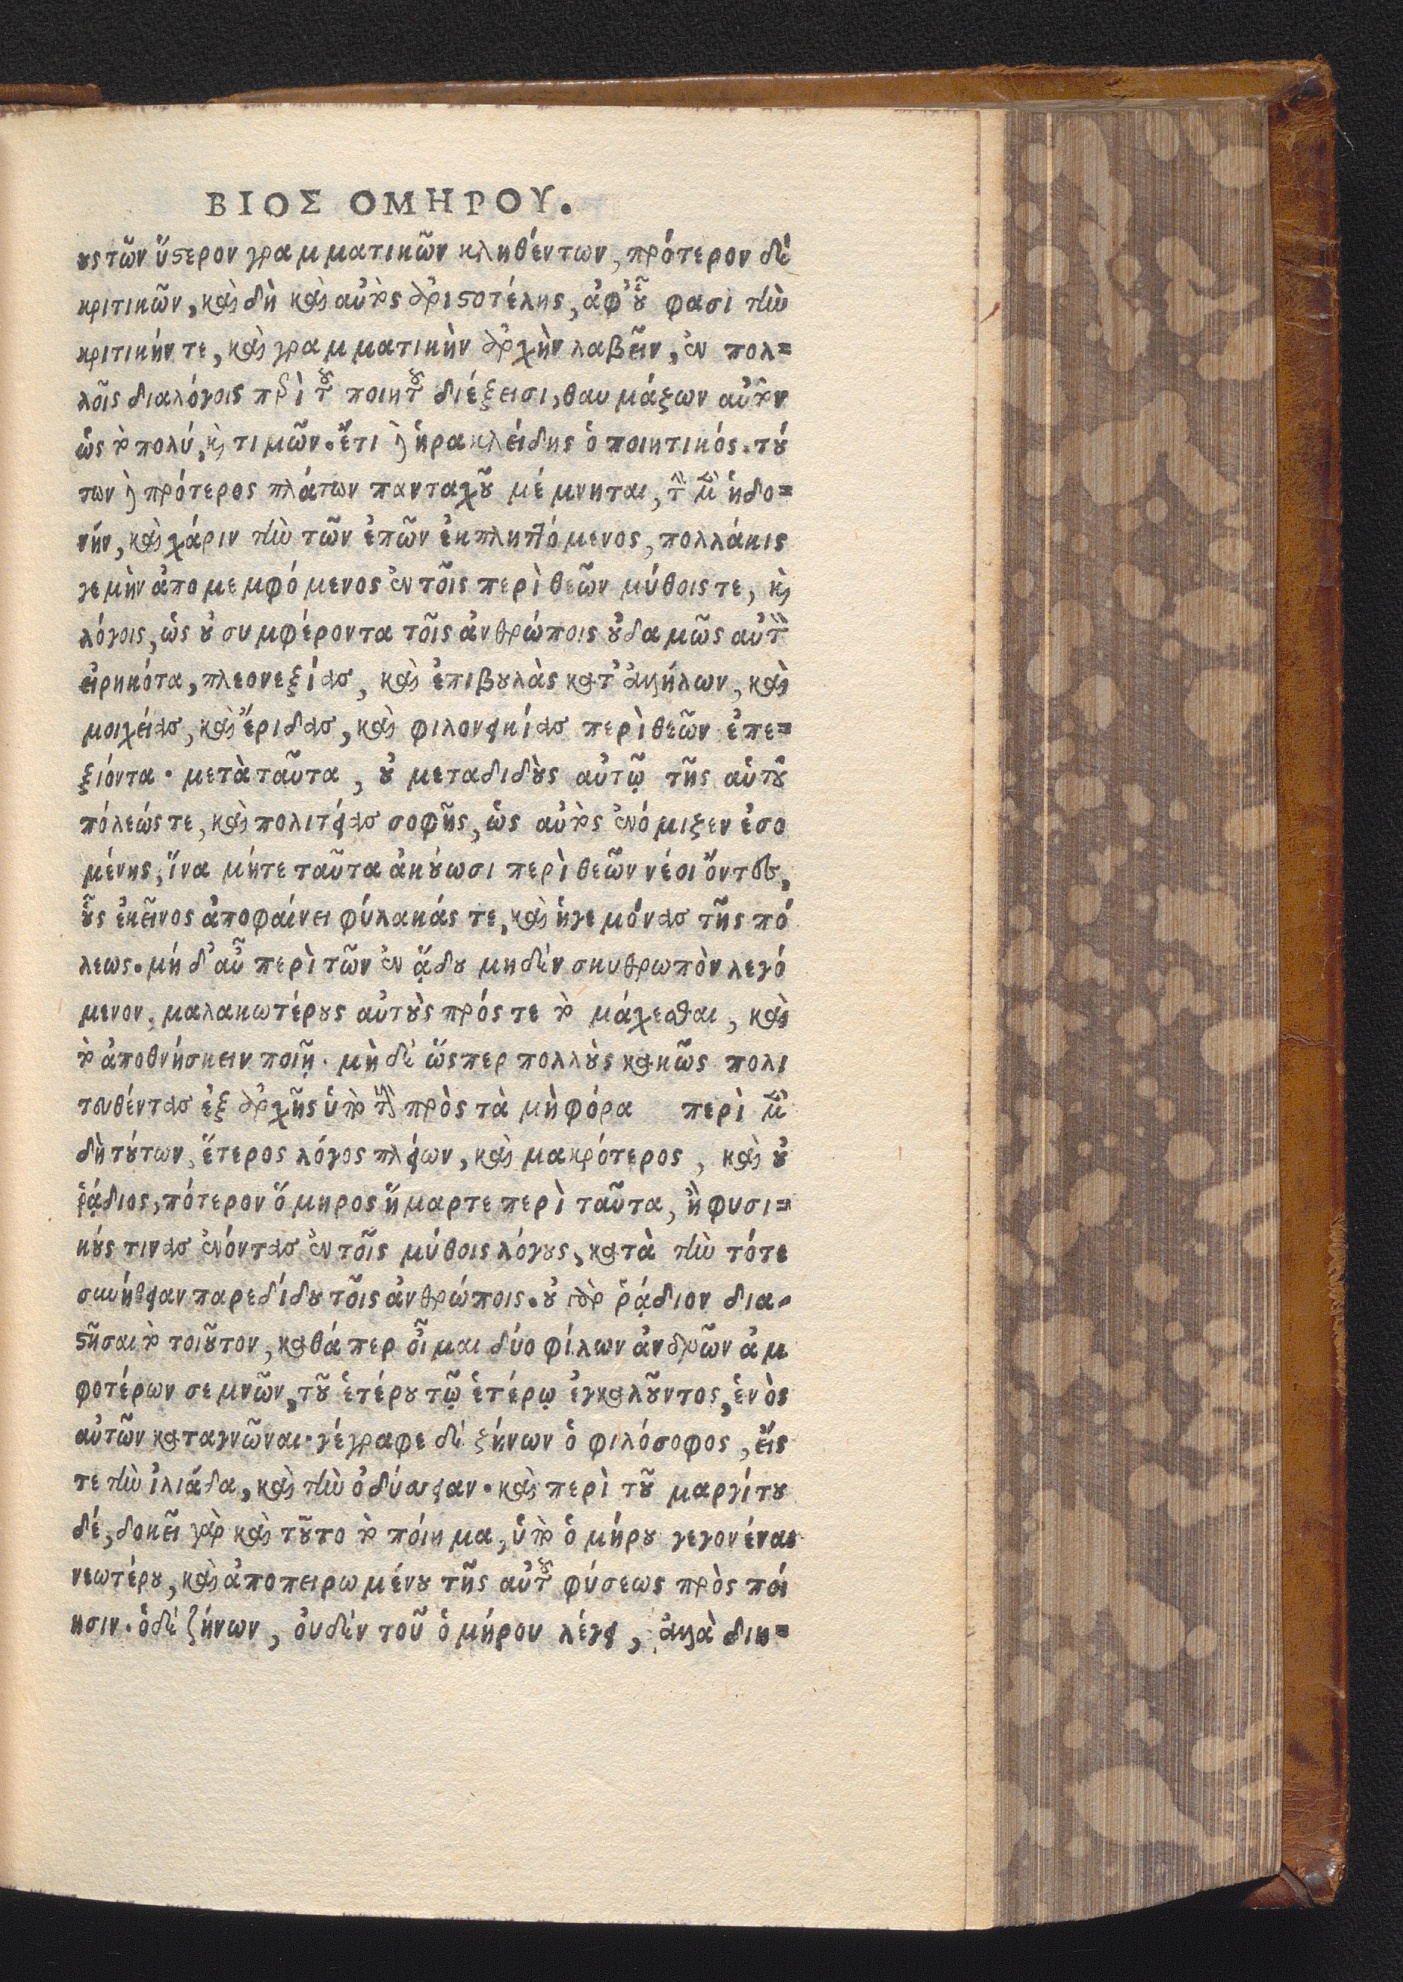 ΒΙΟΣ ΟΜΗΡΟΥ.
ους τῶν ὕστερον γραμματικῶν κληθέντων, πρότερον δὲ
κριτικῶν, καὶ δὴ καὶ αὐτὸς ἀριστοτέλης, ἀφ' οὗ φασι τὴν
κριτικήν τε, καὶ γραμματικὴν ἀρχὴν λαβεῖν, ἐν πολ=
λοῖς διαλόγοις περὶ τοῦ ποιητοῦ διέξεισι, θαυμάζων αὐτὸν
ὡς τὸ πολύ, καὶ τιμῶν. ἔτι δὲ ἡρακλείδης ὁ ποιητικός. τού
των δὲ πρότερος πλάτων πανταχοῦ μέμνηται, τὴν μὲν ἡδο=
νήν, καὶ χάριν τὴν τῶν ἐπῶν ἐκπληττόμενος, πολλάκις
γε μὴν ἀπομεμφόμενος ἐν τοῖς περὶ θεῶν μύθοις τε, καὶ
λόγοις, ὡς οὐ συμφέροντα τοῖς ἀνθρώποις οὐδαμῶς αὐτὸν
εἰρηκότα, πλεονεξίας, καὶ ἐπιβουλὰς κατ' ἀλλήλων, καὶ
μοιχείας, καὶ ἔριδας, καὶ φιλονεικίας περὶ θεῶν ἐπε=
ξιόντα. μετὰ ταῦτα, οὐ μεταδιδοὺς αὐτῷ τῆς αὑτοῦ
πόλεώς τε, καὶ πολιτείας σοφῆς, ὡς αὐτὸς ἐνόμιζεν ἐσο
μένης, ἵνα μήτε ταῦτα ἀκούωσι περὶ θεῶν νέοι ὄντες,
οὓς ἐκεῖνος ἀποφαίνει φύλακάς τε, καὶ ἡγεμόνας τῆς πό
λεως. μή δ' αὖ περὶ τῶν ἐν ᾅδου μηδὲν σκυθρωπὸν λεγό
μενον, μαλακωτέρους αὐτοὺς πρός τε τὸ μάχεσθαι, καὶ
τὸ ἀποθνήσκειν ποιῇ. μὴ δὲ ὥσπερ πολλοὺς κακῶς πολι
τευθέντας ἐξ ἀρχῆς ὑπὸ τῶν πρὸς τὰ μὴ φόρα περὶ μὲν
δὴ τούτων, ἕτερος λόγος πλείων, καὶ μακρότερος, καὶ οὐ
ῥᾴδιος, πότερον ὅμηρος ἥμαρτε περὶ ταῦτα, ἢ φυσι=
κούς τινας ἐνόντας ἐν τοῖς μύθοις λόγους, κατὰ τὴν τότε
συνήθειαν παρεδίδου τοῖς ἀνθρώποις. οὐ γὰρ ῥᾴδιον δια-
στῆσαι τὸ τοιοῦτον, καθάπερ οἶμαι δύο φίλων ἀνδρῶν ἀμ
φοτέρων σεμνῶν, τοῦ ἑτέρου τῷ ἑτέρῳ ἐγκαλοῦντος, ἑνὸς
αὐτῶν καταγνῶναι. γέγραφε δὲ ζήνων ὁ φιλόσοφος, εἴς
τε τὴν ἰλιάδα, καὶ τὴν ὀδύσσειαν. καὶ περὶ τοῦ μαργίτου
δέ, δοκεῖ γὰρ καὶ τοῦτο τὸ ποίημα, ὑπὸ ὁμήρου γεγονέναι
νεωτέρου, καὶ ἀποπειρωμένου τῆς αὐτοῦ φύσεως πρὸς ποί
ησιν. ὁ δὲ ζήνων, οὐδὲν τοῦ ὁμήρου λέγει, ἀλλὰ διη=